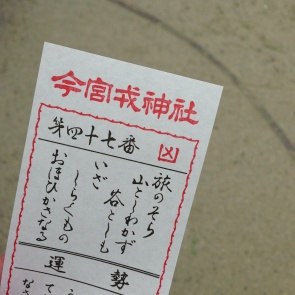 今宮戎神社
第四十七番
凶
旅のそら
山としわかず
谷としも
いざ
しらくもの
おほひかさなる
運勢